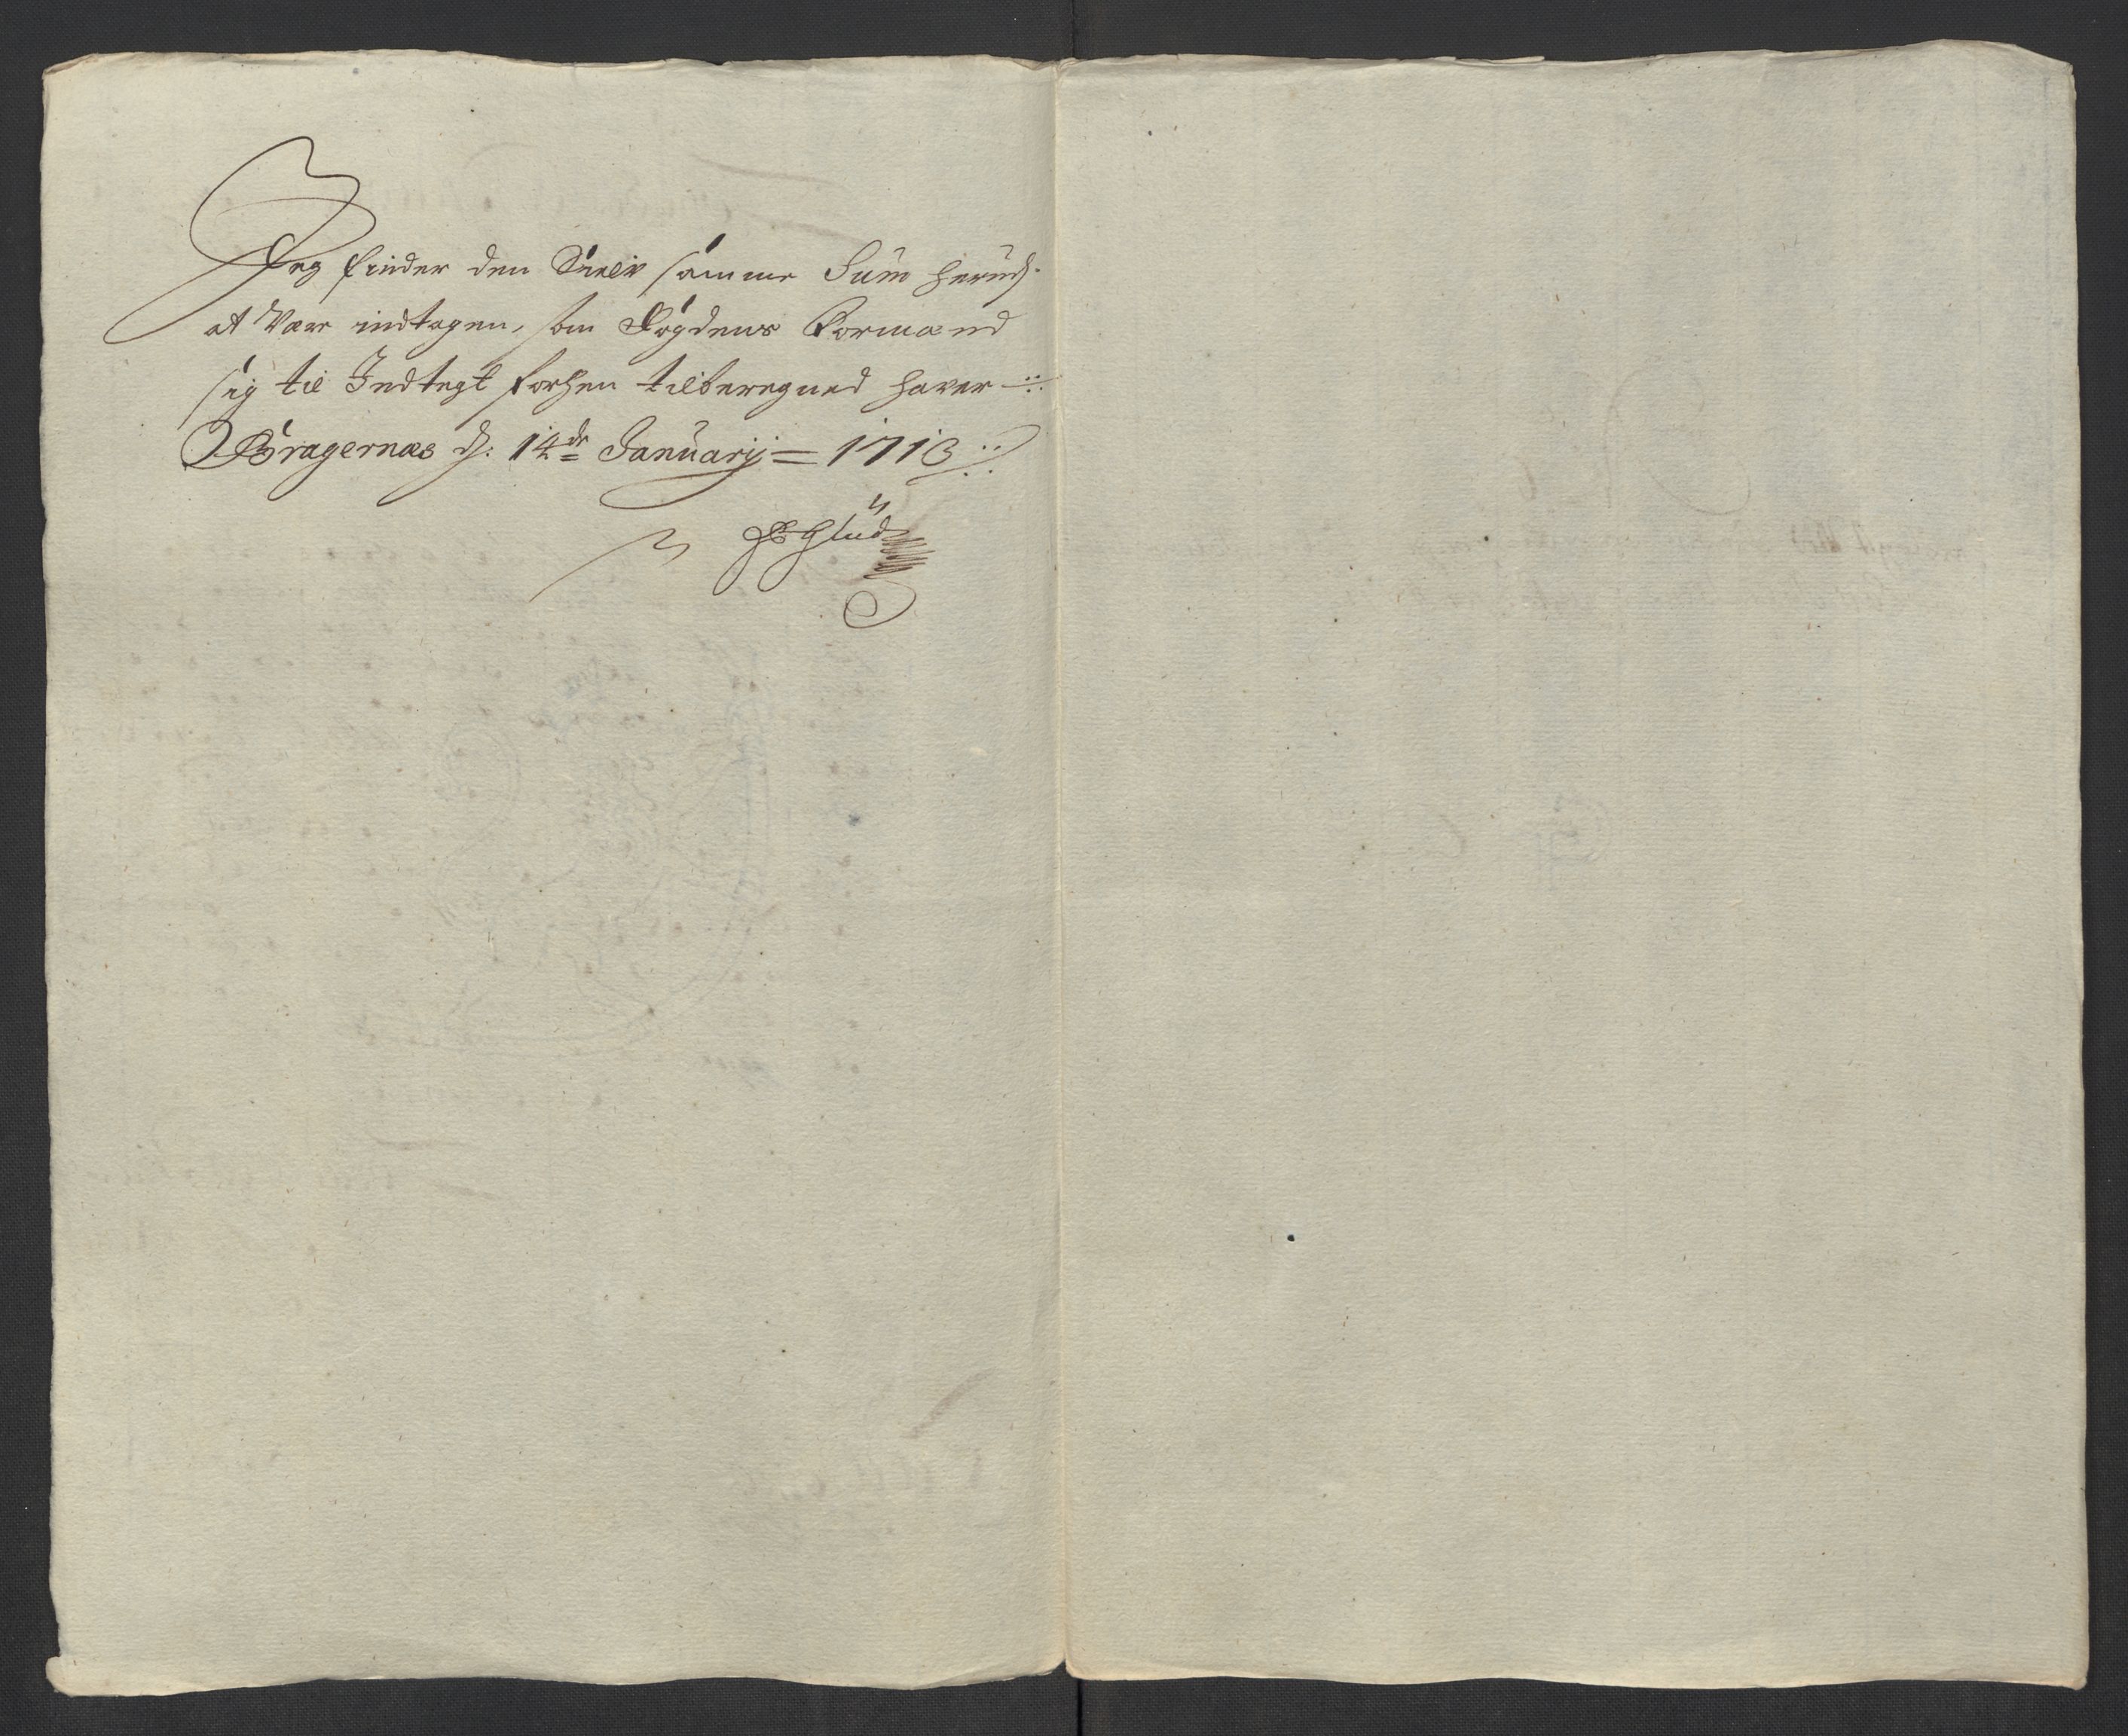 Jeg finder den Sielv samme Sum herud.
at Vær indtagen, som Fogdens Formand
sig til Indtegt forhen tilberegned haver
Bragernæs d. 14de Januarij = 1713
Glud